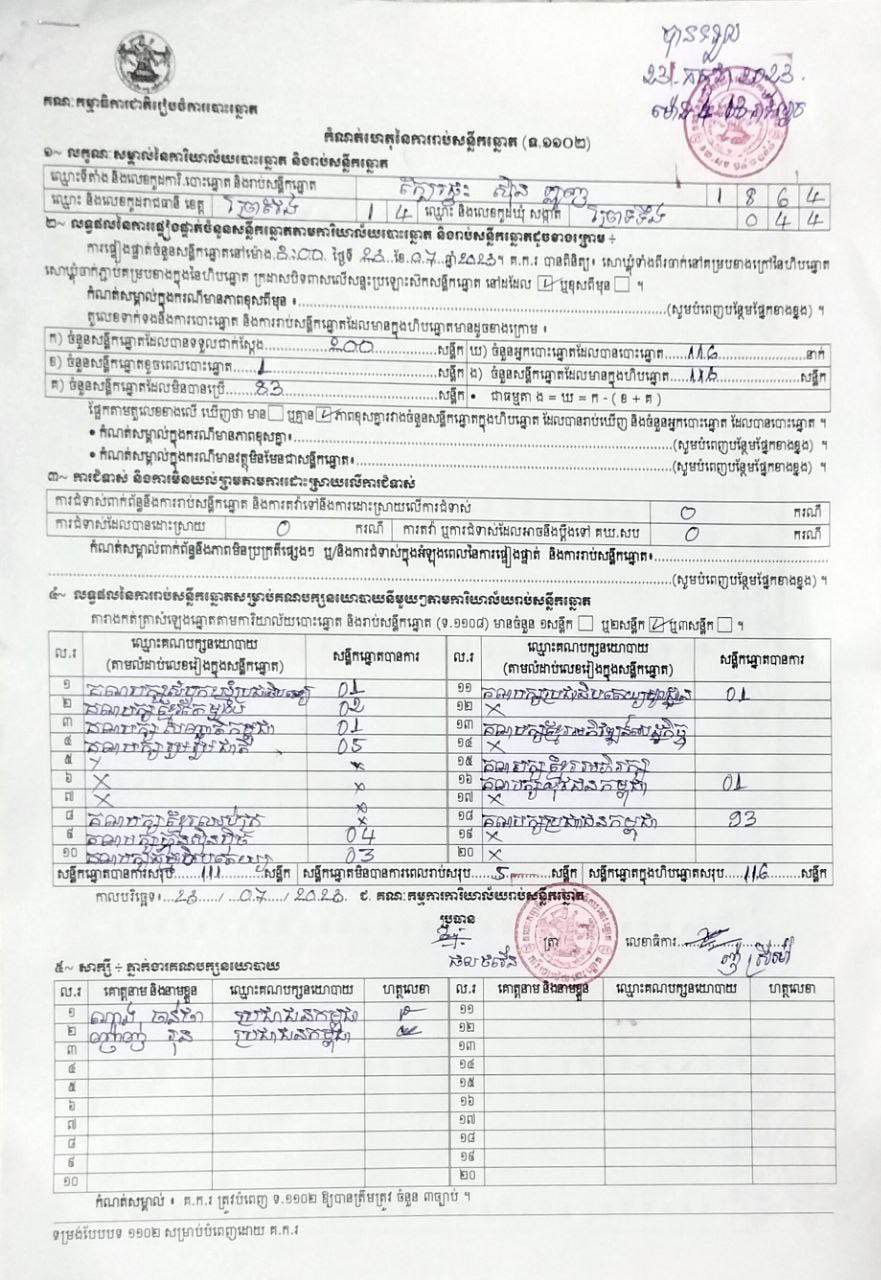 បានទទួល
23 កក្កដា 2023
គណៈកម្មាធិការជាតិរៀបចំការបោះឆ្នោត
កំណត់ហេតុនៃការរាប់សន្លឹកឆ្នោត (ទ.១១០២)
១~ លក្ខណៈសម្គាល់នៃការិយាល័យបោះឆ្នោត និងរាប់សន្លឹកឆ្នោត
ឈ្មោះទីតាំង និងលេខកូដការិ.បោះឆ្នោត និងរាប់សន្លឹកឆ្នោត 1 8 6 4
ឈ្មោះ និងលេខកូដរាជធានី ខេត្ត 1 4 ឈ្មោះ និងលេខកូដឃុំ សង្កាត់ 0 4 4
២~ លទ្ធផលនៃការផ្ទៀងផ្ទាត់ចំនួនសន្លឹកឆ្នោតតាមការិយាល័យបោះឆ្នោត និងរាប់សន្លឹកឆ្នោតដូចខាងក្រោម ÷
ការផ្ទៀងផ្ទាត់ចំនួនសន្លឹកឆ្នោតនៅម៉ោង.3:00. ថ្ងៃទី 23 .ខែ.07..ឆ្នាំ2023។ គ.ក.រ បានពិនិត្យ៖ សោឃ្លុំទាំងពីរចាក់នៅគម្របខាងក្រៅនៃហិបឆ្នោត
សោឃ្លុំចាក់ភ្ជាប់គម្របខាងក្នុងនៃហិបឆ្នោត ក្រដាសបិទពាសលើសន្ទះប្រឡោះសិកសន្លឹកឆ្នោត នៅដដែល ☑ ឬខុសពីមុន ☐ ។
កំណត់សម្គាល់ក្នុងករណីមានភាពខុសពីមុន ៖ (សូមបំពេញបន្ថែមផ្នែកខាងខ្នង) ។
តួលេខទាក់ទងនឹងការបោះឆ្នោត និងការរាប់សន្លឹកឆ្នោតដែលមានក្នុងហិបឆ្នោតមានដូចខាងក្រោម ៖
ក) ចំនួនសន្លឹកឆ្នោតដែលបានទទួលជាក់ស្តែង 200 សន្លឹក ឃ) ចំនួនអ្នកបោះឆ្នោតដែលបានបោះឆ្នោត 116 នាក់
ខ) ចំនួនសន្លឹកឆ្នោតខូចពេលបោះឆ្នោត 1 សន្លឹក ង) ចំនួនសន្លឹកឆ្នោតដែលមានក្នុងហិបឆ្នោត 116 សន្លឹក
គ) ចំនួនសន្លឹកឆ្នោតដែលមិនបានប្រើ 83 សន្លឹក • ជាធម្មតា ង = ឃ = ក - ( ខ + គ )
ផ្អែកតាមតួលេខខាងលើ ឃើញថា មាន ☐ ឬគ្មាន ☑ ភាពខុសគ្នារវាងចំនួនសន្លឹកឆ្នោតក្នុងហិបឆ្នោត ដែលបានរាប់ឃើញ និងចំនួនអ្នកបោះឆ្នោត ដែលបានបោះឆ្នោត ។
• កំណត់សម្គាល់ក្នុងករណីមានភាពខុសគ្នា៖ (សូមបំពេញបន្ថែមផ្នែកខាងខ្នង) ។
• កំណត់សម្គាល់ក្នុងករណីមានវត្ថុមិនមែនជាសន្លឹកឆ្នោត៖ (សូមបំពេញបន្ថែមផ្នែកខាងខ្នង) ។
៣~ ការជំទាស់ និងការមិនយល់ព្រមតាមការដោះស្រាយលើការជំទាស់
ការជំទាស់ពាក់ព័ន្ធនឹងការរាប់សន្លឹកឆ្នោត និងការតវ៉ាទៅនឹងការដោះស្រាយលើការជំទាស់ 0 ករណី
ការជំទាស់ដែលបានដោះស្រាយ 0 ករណី ការតវ៉ា ឬការជំទាស់ដែលអាចនឹងប្តឹងទៅ គឃ.សប 0 ករណី
កំណត់សម្គាល់ពាក់ព័ន្ធនឹងភាពមិនប្រក្រតីផ្សេងៗ ឬ/និងការជំទាស់ក្នុងអំឡុងពេលនៃការផ្ទៀងផ្ទាត់ និងការរាប់សន្លឹកឆ្នោត៖
(សូមបំពេញបន្ថែមផ្នែកខាងខ្នង) ។
៤~ លទ្ធផលនៃការរាប់សន្លឹកឆ្នោតសម្រាប់គណបក្សនយោបាយនីមួយៗតាមការិយាល័យរាប់សន្លឹកឆ្នោត
តារាងកត់ត្រាសំឡេងឆ្នោតតាមការិយាល័យបោះឆ្នោត និងរាប់សន្លឹកឆ្នោត (ទ.១១០៨) មានចំនួន ១សន្លឹក ☐ ឬ២សន្លឹក ☑ ឬ៣សន្លឹក ☐ ។
ល.រ ឈ្មោះគណបក្សនយោបាយ សន្លឹកឆ្នោតបានការ ល.រ ឈ្មោះគណបក្សនយោបាយ សន្លឹកឆ្នោតបានការ
(តាមលំដាប់លេខរៀងក្នុងសន្លឹកឆ្នោត) (តាមលំដាប់លេខរៀងក្នុងសន្លឹកឆ្នោត)
១ គណបក្សសំបុកឃ្មុំប្រជាធិបតេយ្យ 01 ១១ គណបក្សប្រជាធិបតេយ្យមូលដ្ឋាន 01
២ គណបក្សខ្មែរតែមួយ 02 ១២ X
៣ គណបក្ស កម្ពុជា 01 ១៣ គណបក្សខ្មែរអភិវឌ្ឍន៍សេដ្ឋកិច្ច
៤ គណបក្សរួបរួមជាតិ 05 ១៤ X
៥ X X ១៥ គណបក្សខ្មែរអភិរក្ស
៦ X X ១៦ គណបក្សយុវជនកម្ពុជា 01
៧ X X ១៧ X
៨ គណបក្សខ្មែរឈប់ក្រ X ១៨ គណបក្សប្រជាជនកម្ពុជា 93
៩ គណបក្សហ្វ៊ុនស៊ិនប៉ិច 04 ១៩ X
១០ គណបក្ស 03 ២០ X
សន្លឹកឆ្នោតបានការសរុប 111 សន្លឹក សន្លឹកឆ្នោតមិនបានការពេលរាប់សរុប 5 សន្លឹក សន្លឹកឆ្នោតក្នុងហិបឆ្នោតសរុប 116 សន្លឹក
កាលបរិច្ឆេទ៖ 23 / 07 / 2023 ជ. គណៈកម្មការការិយាល័យរាប់សន្លឹកឆ្នោត
ប្រធាន
ត្រា លេខាធិការ
៥~ សាក្សី ÷ ភ្នាក់ងារគណបក្សនយោបាយ
ល.រ គោត្តនាម និងនាមខ្លួន ឈ្មោះគណបក្សនយោបាយ ហត្ថលេខា ល.រ គោត្តនាម និងនាមខ្លួន ឈ្មោះគណបក្សនយោបាយ ហត្ថលេខា
១ ប្រជាជនកម្ពុជា ១១
២ ប្រជាជនកម្ពុជា ១២
៣ ១៣
៤ ១៤
៥ ១៥
៦ ១៦
៧ ១៧
៨ ១៨
៩ ១៩
១០ ២០
កំណត់សម្គាល់ ៖ គ.ក.រ ត្រូវបំពេញ ទ.១១០២ ឱ្យបានត្រឹមត្រូវ ចំនួន ៣ច្បាប់ ។
ទម្រង់បែបបទ ១១០២ សម្រាប់បំពេញដោយ គ.ក.រ